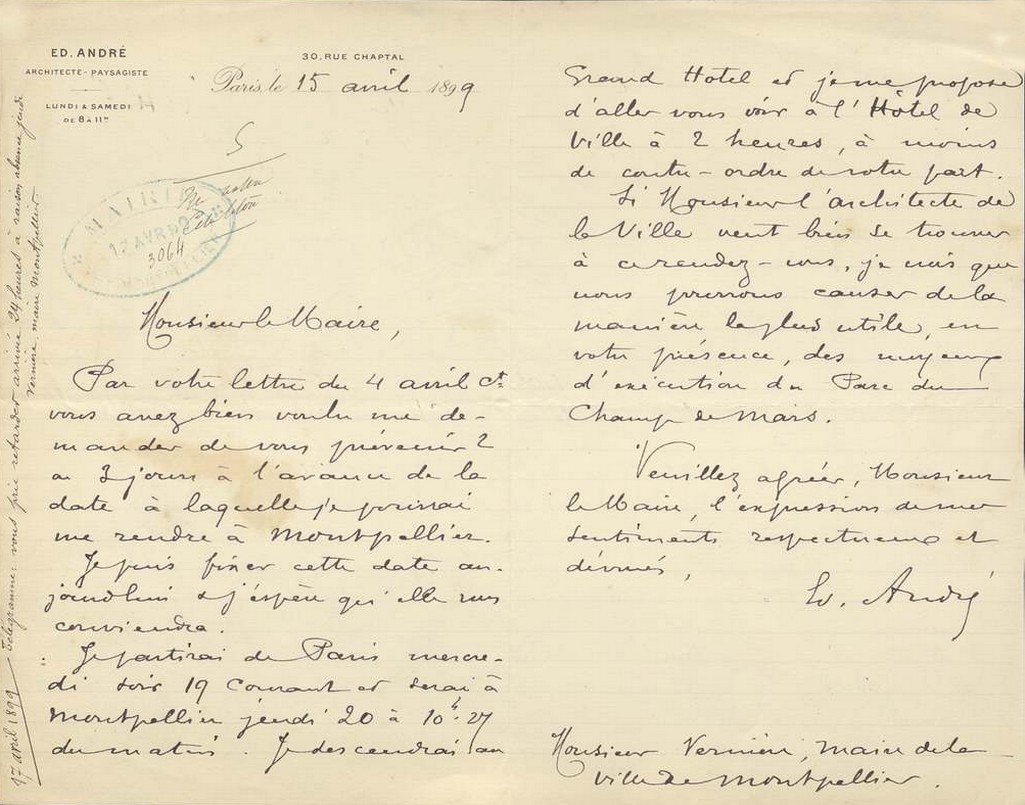 ED. ANDRÉ
ARCHITECTE-PAYSAGISTE
LUNDI & SAMEDI
DE 8 À 11H
30, RUE CHAPTAL
Paris, le 15 avril 1899
MAIRIE
17 AVRIL
3064
Monsieur le Maire,
Par votre lettre du 4 avril ct.
vous avez bien voulu me de-
mander de vous prévenir 2
ou 3 jours à l'avance de la
date à laquelle je pourrai
me rendre à Montpellier.
Je puis fixer cette date au-
jourd'hui & j'espère qu'elle vous
conviendra.
Je partirai de Paris mercre-
di soir 19 courant et serai à
Montpellier jeudi 20 à 10h.27
du matin. Je descendrai au
Grand Hotel et je me propose
d'aller vous voir à l'Hôtel de
Ville à 2 heures, à moins
de contre-ordre de votre part.
Si Monsieur l'architecte de
la Ville veut bien se trouver
à ce rendez-vous, je crois que
nous pourrons causer de la
manière la plus utile, en
votre présence, des moyens
d'exécution du Parc du
Champ de Mars.
Veuillez agréer, Monsieur
le Maire, l'expression de mes
sentiments respectueux et
dévoués,
Ed. André
Monsieur Vernière, Maire de la
Ville de Montpellier.
17 april 1899 Télégramme: vous prie retarder arrivée 24 heures à raison absence jeudi
Vernière maire Montpellier.